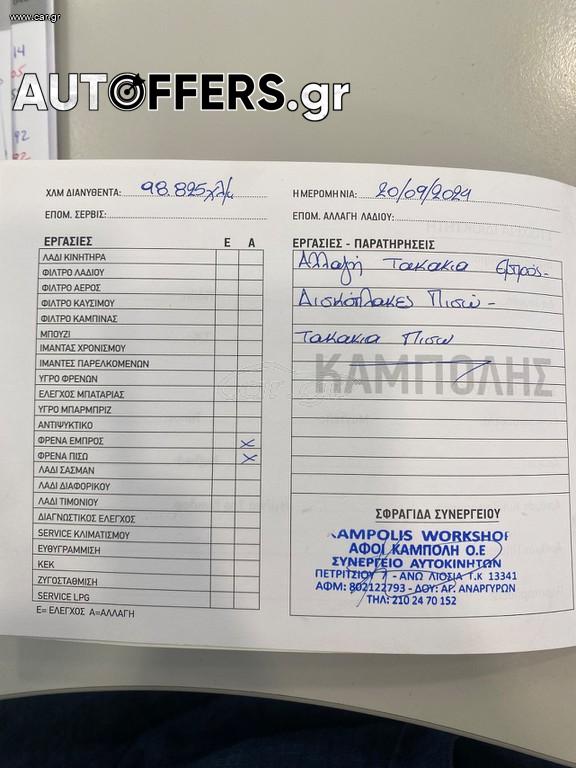 www.car.gr
14
05
92
92
AUTOFFERS.gr
ΧΛΜ ΔΙΑΝΥΘΕΝΤΑ: 98.825χλμ
ΕΠΟΜ. ΣΕΡΒΙΣ:
ΗΜΕΡΟΜΗΝΙΑ: 20/09/2024
ΕΠΟΜ. ΑΛΛΑΓΗ ΛΑΔΙΟΥ:
ΕΡΓΑΣΙΕΣ Ε Α
ΛΑΔΙ ΚΙΝΗΤΗΡΑ
ΦΙΛΤΡΟ ΛΑΔΙΟΥ
ΦΙΛΤΡΟ ΑΕΡΟΣ
ΦΙΛΤΡΟ ΚΑΥΣΙΜΟΥ
ΦΙΛΤΡΟ ΚΑΜΠΙΝΑΣ
ΜΠΟΥΖΙ
ΙΜΑΝΤΑΣ ΧΡΟΝΙΣΜΟΥ
ΙΜΑΝΤΕΣ ΠΑΡΕΛΚΟΜΕΝΩΝ
ΥΓΡΟ ΦΡΕΝΩΝ
ΕΛΕΓΧΟΣ ΜΠΑΤΑΡΙΑΣ
ΥΓΡΟ ΜΠΑΡΜΠΡΙΖ
ΑΝΤΙΨΥΚΤΙΚΟ
ΦΡΕΝΑ ΕΜΠΡΟΣ x
ΦΡΕΝΑ ΠΙΣΩ x
ΛΑΔΙ ΣΑΣΜΑΝ
ΛΑΔΙ ΔΙΑΦΟΡΙΚΟΥ
ΛΑΔΙ ΤΙΜΟΝΙΟΥ
ΔΙΑΓΝΩΣΤΙΚΟΣ ΕΛΕΓΧΟΣ
SERVICE ΚΛΙΜΑΤΙΣΜΟΥ
ΕΥΘΥΓΡΑΜΜΙΣΗ
ΚΕΚ
ΖΥΓΟΣΤΑΘΜΙΣΗ
SERVICE LPG
Ε= ΕΛΕΓΧΟΣ Α=ΑΛΛΑΓΗ
ΕΡΓΑΣΙΕΣ - ΠΑΡΑΤΗΡΗΣΕΙΣ
Αλλαγή Τακακια Εμπρός-
Δισκόπλακες Πισω -
Τακακια Πισω
ΚΑΜΠΟΛΗΣ
ΣΦΡΑΓΙΔΑ ΣΥΝΕΡΓΕΙΟΥ
KAMPOLIS WORKSHOP
ΑΦΟΙ ΚΑΜΠΟΛΗ Ο.Ε
ΣΥΝΕΡΓΕΙΟ ΑΥΤΟΚΙΝΗΤΩΝ
ΠΕΤΡΙΤΣΙΟΥ 1 - ΑΝΩ ΛΙΟΣΙΑ Τ.Κ 13341
ΑΦΜ: 802122793 - ΔΟΥ: ΑΓ. ΑΝΑΡΓΥΡΩΝ
ΤΗΛ: 210 24 70 152